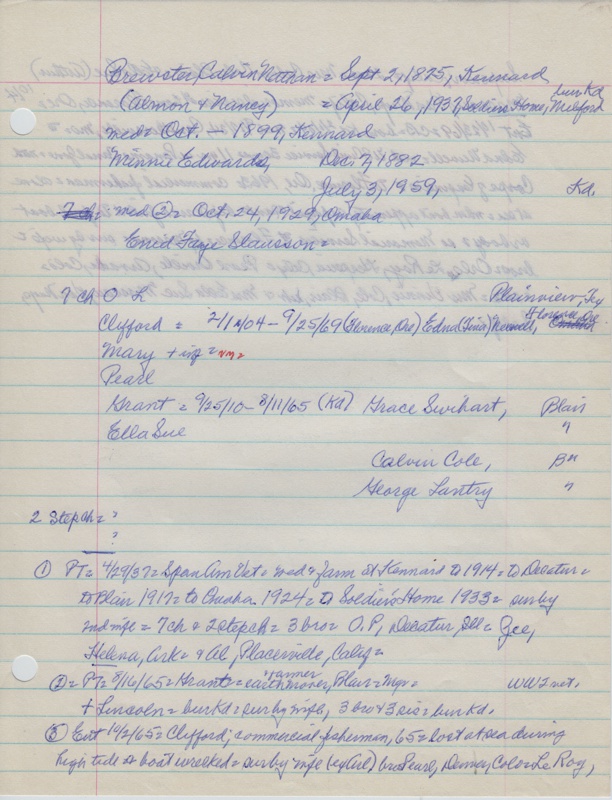 Brewster, Calvin Nathan = Sept 2, 1875, Kennard
(Almon & Nancy) = April 26, 1937, Soldiers Home, Milford
bur Kd
med = Oct. - 1899, Kennard
Minnie Edwards, Dec 7, 1882
July 3, 1959, Kd.
med ② = Oct, 24, 1929, Omaha
Enid Faye Slawson =
7 ch O L Plainview,
Clifford = 2/1/04 - 9/25/69 (Florence, Ore) Edna (Tina) Newell, Florence Ore
Mary + inf =
Pearl
Grant = 9/25/10 - 8/11/65 (Kd) Grace Swihart, Blair
Ella Sue "
Calvin Cole, B"
George Lantry "
2 Step ch = ?
?
① PT = 4/29/37 = Span Am Vet = med & farm at Kennard to 1914 = to Decatur =
to Blair 1917 = to Omaha 1924 = to Soldier's Home 1933 = sur by
2nd wife = 7 ch & 2 step ch = 3 bro = O.P, Decatur, Ill = Gee,
Helena, Ark = & Al, Placerville, Calif =
② = PT = 8/16/65 = Grant = farmer earthmover, Blair = Mgr = WW2 vet.
+ Lincoln = bur Kd = sur by wife, 3 bro & 3 sis = bur Kd.
③ Ent 10/2/65 = Clifford; commercial fisherman, 65 = lost at sea during
high tide & boat wrecked = sur by wife (ex Arl) bro Pearl, Denver, Colo = Le Roy,